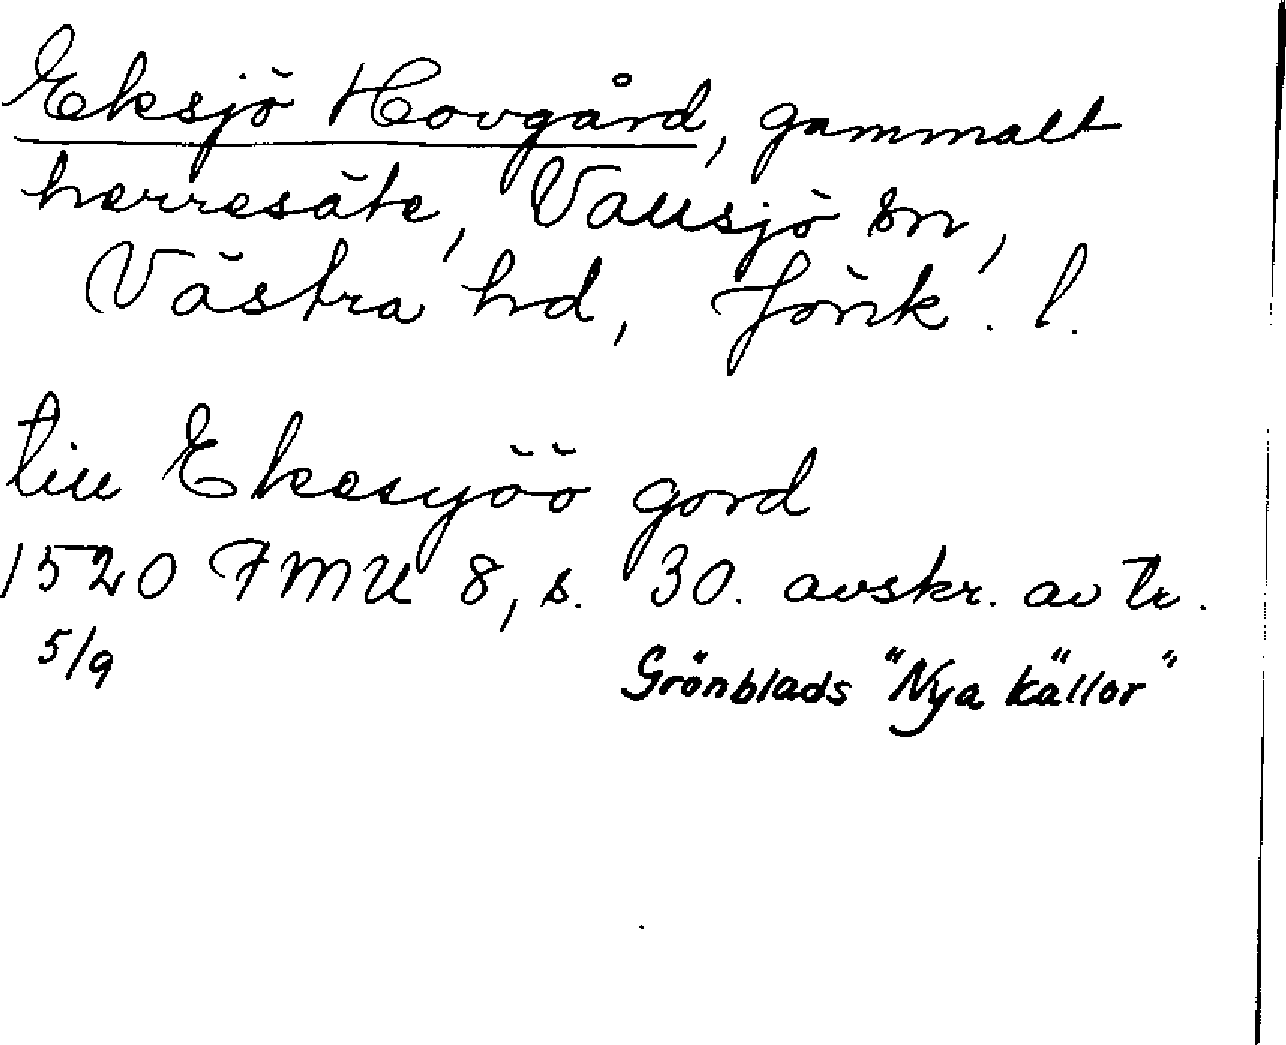 Eksjö Hovgård, gammalt
herresäte, Vallsjö sn,
Västra hd, Jönk. l.
till Ekesyöö gord
1520 FMU 8, s. 30. avskr. av tr.
5/9
Grönblads "Nya källor"